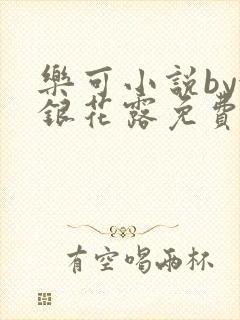 樂可小說by
銀花露免費
有空喝兩杯